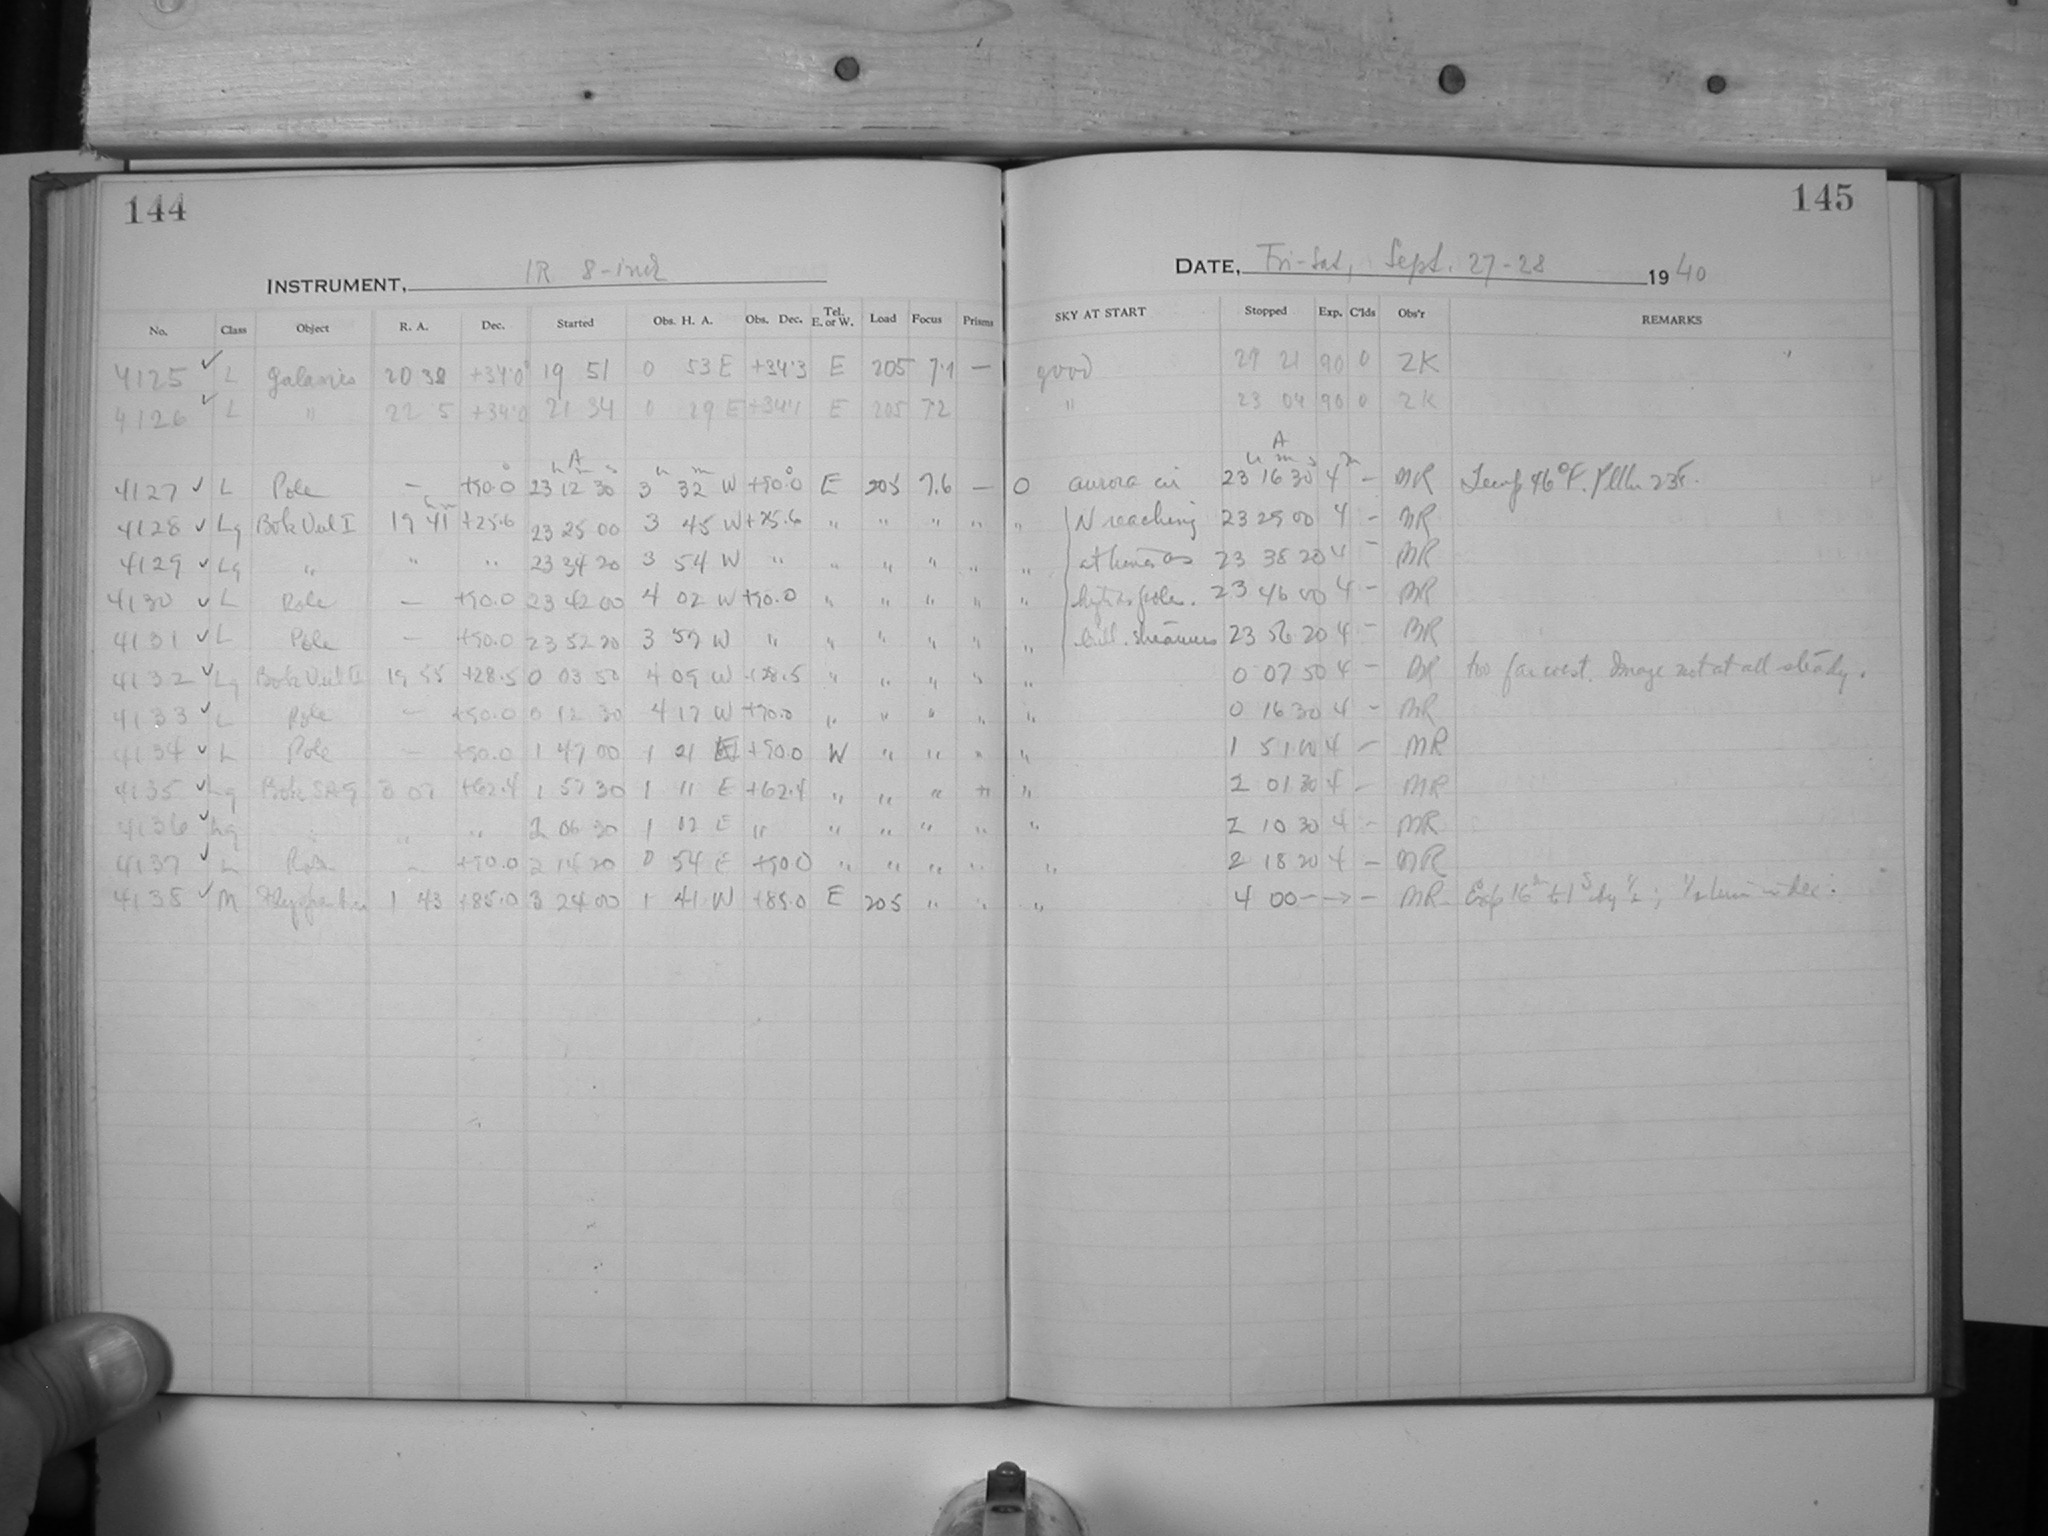 144
145
INSTRUMENT, IR 8-inch
DATE, Fri-Sat, Sept. 27-28 1940
No. Class Object R. A. Dec. Started Obs. H. A. Obs. Dec. Tel. E. or W. Load Focus Prisms SKY AT START Stopped Exp. C'lds Obs'r REMARKS
4125 ✓ L galaxies 20 38 +34.0 19 51 0 53 E +34.3 E 205 7.1 — good 21 21 90 0 ZK
4126 ✓ L " 22 5 +34.0 21 34 0 29 E +34.1 E 205 7.2 " 23 04 90 0 ZK
A A
4127 ✓ L Pole — +90.0 23 12 30 3 32 W +90.0 E 205 7.6 — 0 aurora in 23 16 30 4 — MR Temp 46°F.
4128 ✓ Lg Bok Vul I 19 41 +25.6 23 25 00 3 45 W +25.6 " " " " " N reaching 23 29 00 4 — MR
4129 ✓ Lg " " " 23 34 20 3 54 W " " " " " " at times as 23 38 20 4 — MR
4130 ✓ L Pole — +90.0 23 42 00 4 02 W +90.0 " " " " " high as pole. 23 46 00 4 — MR
4131 ✓ L Pole — +90.0 23 52 20 3 57 W " " " " " " streamers 23 56 20 4 — MR
4132 ✓ Lg Bok Vul II 19 55 +28.5 0 03 50 4 09 W +28.5 " " " " " 0 07 50 4 — MR too far west. Image not at all steady.
4133 ✓ L Pole — +90.0 0 12 30 4 17 W +90.0 " " " " " 0 16 30 4 — MR
4134 ✓ L Pole — +90.0 1 47 00 1 21 E +90.0 W " " " " 1 51 00 4 — MR
4135 ✓ Lg Bok SA 9 3 07 +62.4 1 57 30 1 11 E +62.4 " " " " " 2 01 30 4 — MR
4136 ✓ Lg " " " 2 06 30 1 02 E " " " " " " 2 10 30 4 — MR
4137 ✓ L Pole — +90.0 2 14 20 0 54 E +90.0 " " " " " 2 18 20 4 — MR
4138 ✓ M 1 43 +85.0 3 24 00 1 41 W +85.0 E 205 " " " 4 00 — → — MR Exp 16m to 1s by ½;